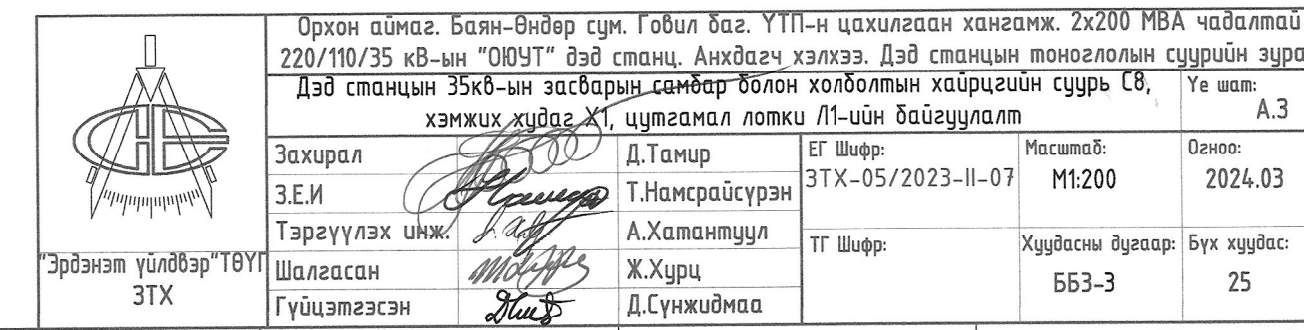 Орхон аймаг. Баян-Өндөр сум. Говил баг. ҮТП-н цахилгаан хангамж. 2х200 МВА чадалтай
220/110/35 кВ-ын "ОЮУТ" дэд станц. Анхдагч хэлхээ. Дэд станцын тоноглолын суурийн зура
Дэд станцын 35кв-ын засварын самбар болон холболтын хайрцгийн суурь С8,
хэмжих худаг Х1, цутгамал лотки Л1-ийн байгуулалт
Үе шат:
А.З
"Эрдэнэт үйлдвэр"ТӨҮГ
ЗТХ
Захирал
Д.Тамир
З.Е.И
Т.Намсрайсүрэн
Тэргүүлэх инж.
А.Хатантуул
Шалгасан
Ж.Хурц
Гүйцэтгэсэн
Д.Сүнжидмаа
ЕГ Шифр:
ЗТХ-05/2023-II-07
Масштаб:
М1:200
Огноо:
2024.03
ТГ Шифр:
Хуудасны дугаар:
ББЗ-3
Бүх хуудас:
25